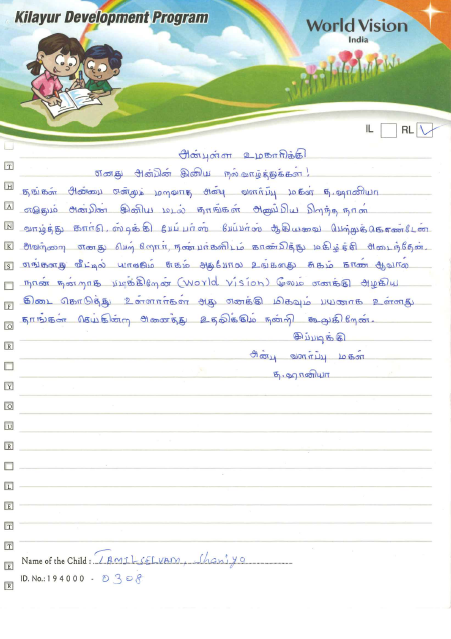 Kilayur Development Program
World Vision
India
IL RL
அன்புள்ள உமகாரிக்கி
எனது அன்பின் இனிய நல்வாழ்த்துக்கள்!
தங்கள் அன்பை என்றும் மறவாத அன்பு வளர்ப்பு மகள் த.ஷானியா
எழுதும் அன்பின் இனிய மடல் தாங்கள் அனுப்பிய பிறந்த நாள்
வாழ்த்து கார்டு, ஸ்டிக்கி பேப்பர்ஸ் பேப்பர்ஸ் ஆகியவை பெற்றுக்கொண்டேன்
அவற்றை எனது பெற்றோர், நண்பர்களிடம் காண்பித்து மகிழ்ச்சி அடைந்தேன்.
எங்களது வீட்டில் யாவரும் சுகம் அதுபோல உங்களது சுகம் காண ஆவல்
நான் நன்றாக படிக்கிறேன் (World vision) லேம் எனக்கு அழகிய
கிடை கொடுத்து உள்ளார்கள் அது எனக்கு மிகவும் பயனாக உள்ளது
தாங்கள் செய்கின்ற அனைத்து உதவிக்கும் நன்றி கூறுகிறேன்.
இப்படிக்கு
அன்பு வளர்ப்பு மகள்
த.ஷானியா
THANKS FOR YOUR LETTER
Name of the Child : TAMILSELVAM, Shaniyo
ID. No.: 194000 - 0308